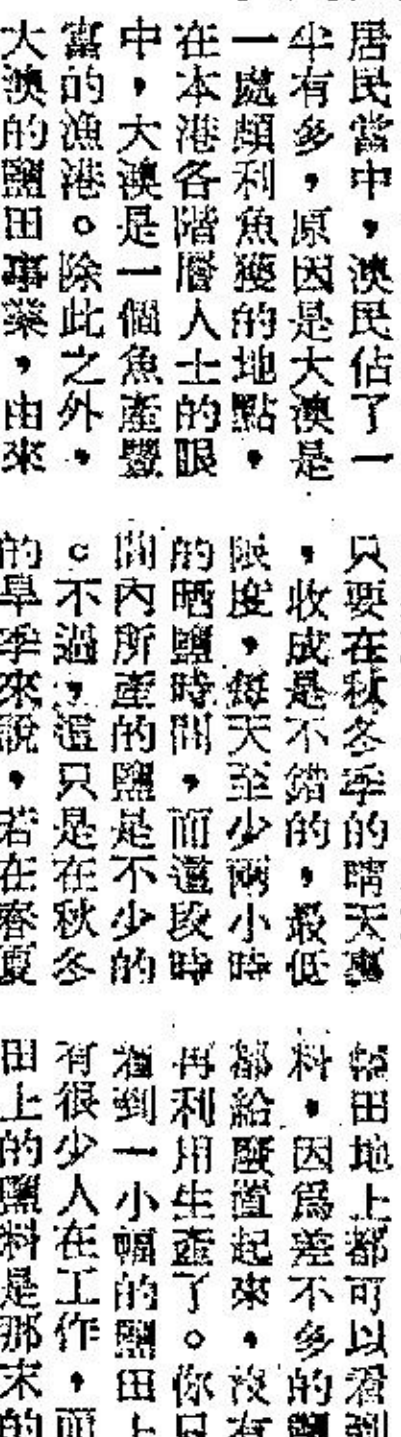 居民當中，澳民佔了一
半有多，原因是大澳是
一處頗利魚獲的地點。
在本港各階層人士的眼
中，大澳是一個魚產豐
富的漁港。除此之外，
大澳的鹽田事業，由來
只要在秋冬季的晴天裏
，收成是不錯的，最低
限度，每天至少兩小時
的晒鹽時間，而這段時
間內所產的鹽是不少的
。不過，這只是在秋冬
的旱季來說，若在春夏
田地上都可以看到
料，因爲差不多的鹽
都給廢置起來，沒有
再利用生產了。你只
看到一小幅的鹽田上
有很少人在工作，而
田上的鹽料是那末的